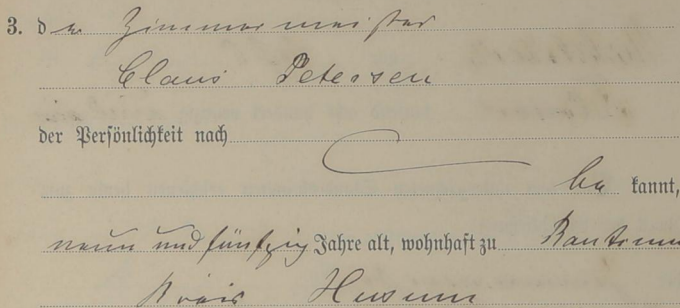 3. der Zimmermeister
Claus Petersen
der Persönlichkeit nach
be kannt,
neun und fünfzig Jahre alt, wohnhaft zu Rantrum
Kreis Husum